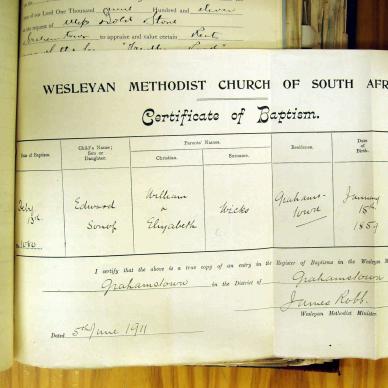 of our Lord One Thousand nine Hundred and eleven
at the request of Miss Isobel Stone
to appraise and value certain
WESLEYAN METHODIST CHURCH OF SOUTH AFR
Certificate of Baptism.
Date of Baptism.
Child's Name; Son or Daughter.
Parents' Names.
Christian.
Surname.
Residence.
Date of Birth.
Feby 13th
Edward
Son of
William
&
Elizabeth
Wicks
Grahams-
town
January
15th
1889
I certify that the above is a true copy of an entry in the Register of Baptisms in the Wesleyan M
Grahamstown in the District of Grahamstown
James Robb.
Wesleyan Methodist Minister.
Dated 5th June 1911